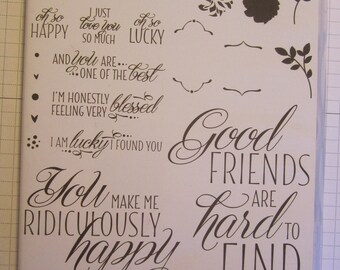 oh so
HAPPY
I JUST
love you
SO MUCH
oh so
LUCKY
AND you ARE
ONE OF THE best
I'M HONESTLY
FEELING VERY blessed
I AM lucky I FOUND YOU
Good
FRIENDS
ARE
hard TO
FIND
You MAKE ME
RIDICULOUSLY
happy